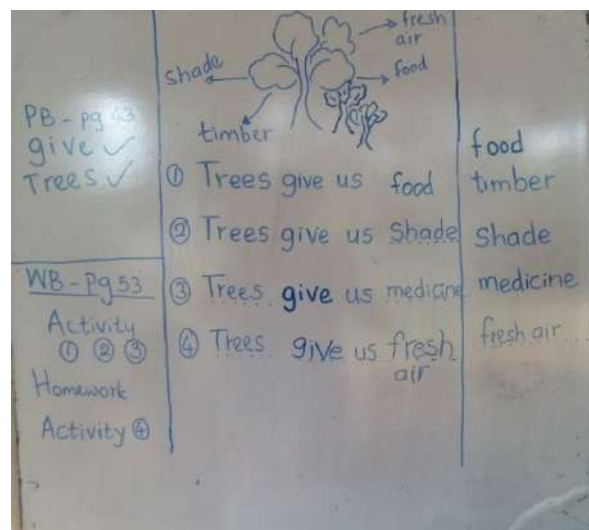 PB - pg 43
give ✓
Trees ✓
WB - Pg 53
Activity
① ② ③
Homework
Activity ④
fresh
air
shade
food
timber
① Trees give us food
② Trees give us Shade
③ Trees give us medicine
④ Trees give us fresh
air
food
timber
Shade
medicine
fresh air